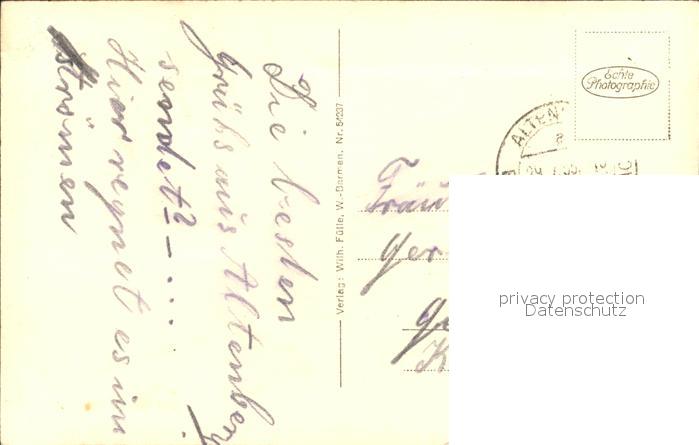 Die besten
Grüße aus Altenberg
sendet? - ...
Hier regnet es in
Strömen
Verlag: Wilh. Fülle, W.-Barmen. Nr. 54237
Echte
Photographie
ALTEN
Fräu
Ger
Ge
K
privacy protection
Datenschutz